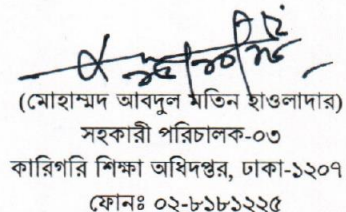 (মোহাম্মদ আবদুল মতিন হাওলাদার)
সহকারী পরিচালক-০৩
কারিগরি শিক্ষা অধিদপ্তর, ঢাকা-১২০৭
ফোনঃ ০২-৮১৮১২২৫